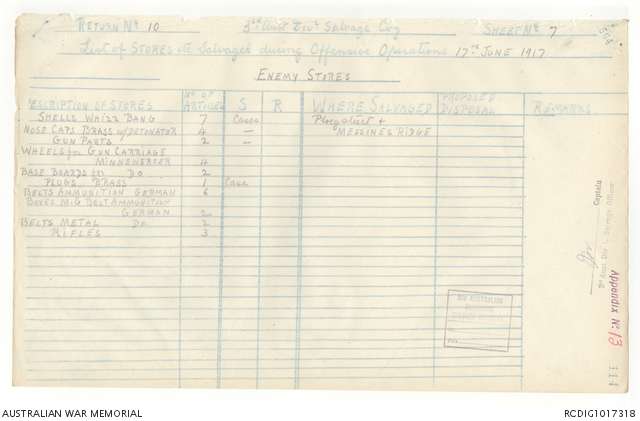 RETURN No 10    3rd Aust Divl Salvage Coy    SHEET No 7
List of STORES etc Salvaged during Offensive Operations 17TH JUNE 1917
ENEMY STORES
DESCRIPTION OF STORES    No OF ARTICLES    S    R    WHERE SALVAGED    PROPOSED DISPOSAL    REMARKS
SHELLS WHIZZ BANG    7    Cases    Ploegsteert +
NOSE CAPS BRASS w/DETONATOR    4    —    MESSINES RIDGE
GUN PARTS    2    —
WHEELS for GUN CARRIAGE
MINNEWERFER    4
BASE BOARDS for DO    2
PLUGS BRASS    1    Case
BELTS AMMUNITION GERMAN    6
BOXES M.G BELT AMMUNITION
GERMAN    2
BELTS METAL Do    2
RIFLES    3
Captain
3rd Aust Div'l. Salvage Officer
Appendix No 13
111
AUSTRALIAN WAR MEMORIAL    RCDIG1017318